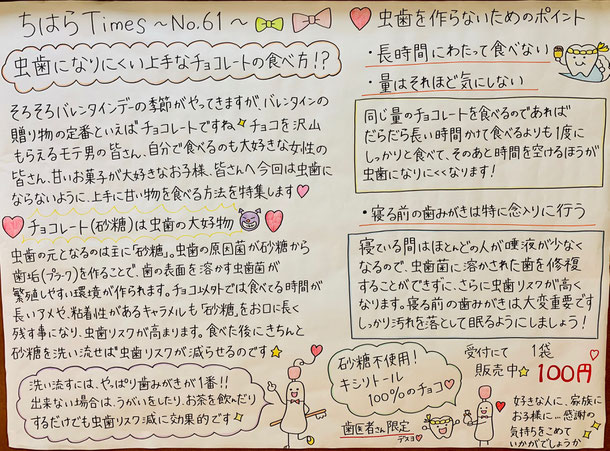 ちはらTimes ～No.61～
虫歯になりにくい上手なチョコレートの食べ方!?
そろそろバレンタインデーの季節がやってきますが、バレンタインの
贈り物の定番といえばチョコレートですね チョコを沢山
もらえるモテ男の皆さん、自分で食べるのも大好きな女性の
皆さん、甘いお菓子が大好きなお子様、皆さんへ今回は虫歯に
ならないように、上手に甘い物を食べる方法を特集します
チョコレート(砂糖)は虫歯の大好物
虫歯の元となるのは主に「砂糖」。虫歯の原因菌が砂糖から
歯垢(プラーク)を作ることで、歯の表面を溶かす虫歯菌が
繁殖しやすい環境が作られます。チョコ以外では食べてる時間が
長いアメや、粘着性があるキャラメルも「砂糖」をお口に長く
残す事になり、虫歯リスクが高まります。食べた後にきちんと
砂糖を洗い流せば虫歯リスクが減らせるのです
洗い流すには、やっぱり歯みがきが1番!!
出来ない場合は、うがいをしたり、お茶を飲んだり
するだけでも虫歯リスク減に効果的です
虫歯を作らないためのポイント
・長時間にわたって食べない
・量はそれほど気にしない
同じ量のチョコレートを食べるのであれば
だらだら長い時間かけて食べるよりも1度に
しっかりと食べて、そのあと時間を空けるほうが
虫歯になりにくくなります!
・寝る前の歯みがきは特に念入りに行う
寝ている間はほとんどの人が唾液が少なく
なるので、虫歯菌に溶かされた歯を修復
することができずに、さらに虫歯リスクが高く
なります。寝る前の歯みがきは大変重要です
しっかり汚れを落として眠るようにしましょう!
砂糖不使用!
キシリトール
100%のチョコ
歯医者さん限定
デスヨ
受付にて 1袋
販売中 100円
好きな人に、家族に
お子様に…感謝の
気持ちをこめて
いかがでしょうか